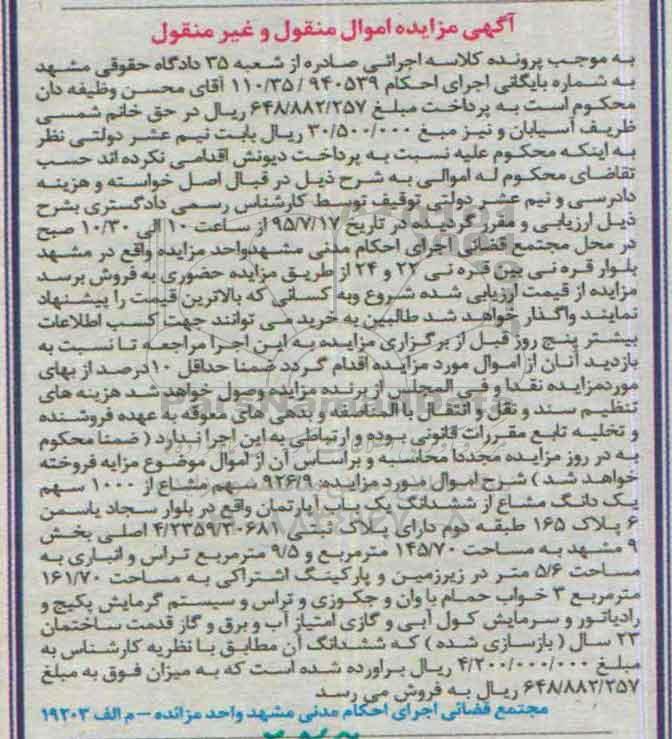 آگهی مزایده اموال منقول و غیر منقول
به موجب پرونده کلاسه اجرائی صادره از شعبه ۳۵ دادگاه حقوقی مشهد
به شماره بایگانی اجرای احکام ۹۴۰۵۳۹ / ۱۱۰/۳۵ آقای محسن وظیفه دان
محکوم است به پرداخت مبلغ ۶۴۸/۸۸۲/۲۵۷ ریال در حق خانم شمسی
ظریف آسیابان و نیز مبغ ۳۰/۵۰۰/۰۰۰ ریال بابت نیم عشر دولتی نظر
به اینکه محکوم علیه نسبت به پرداخت دیونش اقدامی نکرده اند حسب
تقاضای محکوم له اموالی به شرح ذیل در قبال اصل خواسته و هزینه
دادرسی و نیم عشر دولتی توقیف توسط کارشناس رسمی دادگستری بشرح
ذیل ارزیابی و مقرر گردیده در تاریخ ۹۵/۷/۱۷ از ساعت ۱۰ الی ۱۰/۳۰ صبح
در محل مجتمع قضائی اجرای احکام مدنی مشهدواحد مزایده واقع در مشهد
بلوار قره نی بین قره نی ۲۲ و ۲۴ از طریق مزایده حضوری به فروش برسد
مزایده از قیمت ارزیابی شده شروع وبه کسانی که بالاترین قیمت را پیشنهاد
نمایند واگذار خواهد شد طالبین به خرید می توانند جهت کسب اطلاعات
بیشتر پنج روز قبل از برگزاری مزایده به این اجرا مراجعه تا نسبت به
بازدید آنان از اموال مورد مزایده اقدام گردد ضمنا حداقل ۱۰درصد از بهای
موردمزایده نقدا و فی المجلس از برنده مزایده وصول خواهد شد هزینه های
تنظیم سند و نقل و انتقال بالمناصفه و بدهی های معوقه به عهده فروشنده
و تخلیه تابع مقررات قانونی بوده و ارتباطی به این اجرا ندارد ( ضمنا محکوم
به در روز مزایده مجددا محاسبه و براساس آن از اموال موضوع مزایه فروخته
خواهد شد ) شرح اموال مورد مزایده: ۹۲۶/۹ سهم مشاع از ۱۰۰۰ سهم
یک دانگ مشاع از ششدانگ یک باب آپارتمان واقع در بلوار سجاد یاسمن
۶ پلاک ۱۶۵ طبقه دوم دارای پلاک ثبتی ۴/۲۳۵۹/۳۰۶۸۱ اصلی بخش
۹ مشهد به مساحت ۱۴۵/۷۰ مترمربع و ۹/۵ مترمربع تراس و انباری به
مساحت ۵/۶ متر در زیرزمین و پارکینگ اشتراکی به مساحت ۱۶۱/۷۰
مترمربع ۳ خواب حمام با وان و جکوزی و تراس و سیستم گرمایش پکیج و
رادیاتور و سرمایش کول آبی و گازی امتیاز آب و برق و گاز قدمت ساختمان
۲۳ سال ( بازسازی شده ) که ششدانگ آن مطابق با نظریه کارشناس به
مبلغ ۴/۲۰۰/۰۰۰/۰۰۰ ریال براورده شده است که به میزان فوق به مبلغ
۶۴۸/۸۸۲/۲۵۷ ریال به فروش می رسد
مجتمع قضائی اجرای احکام مدنی مشهد واحد مزائده – م الف ۱۹۲۰۳